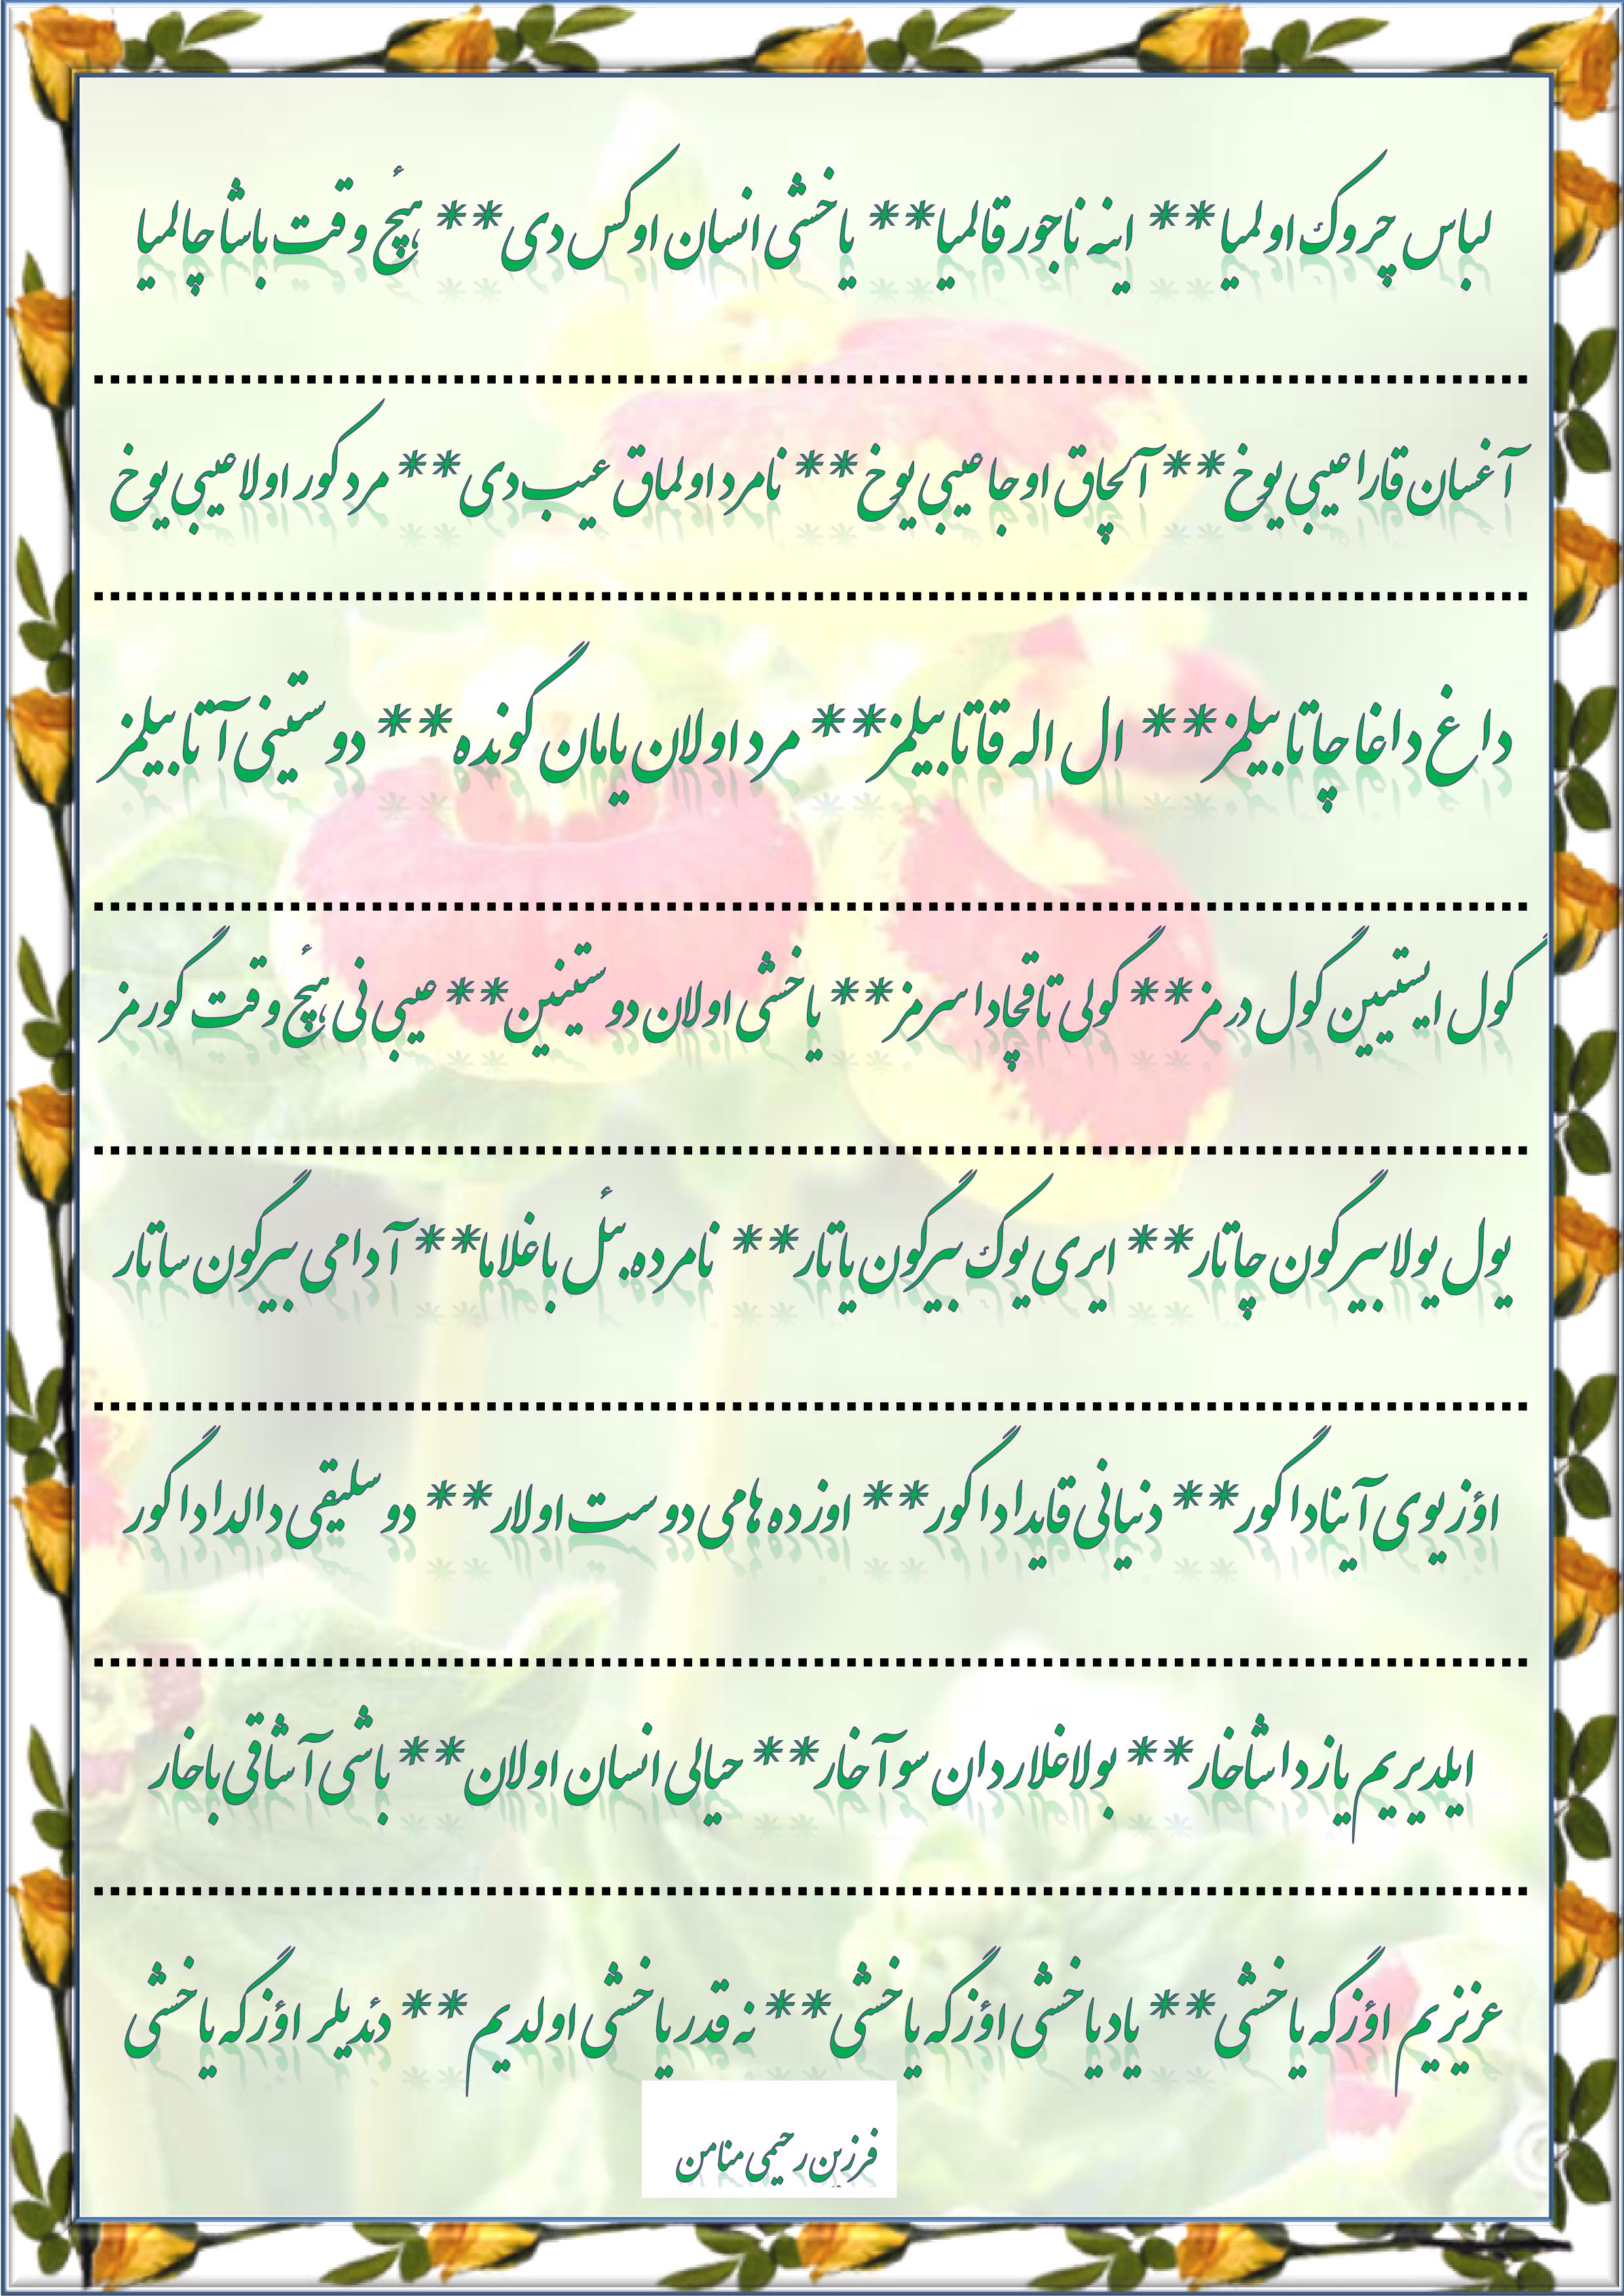 لباس چروک اولمیا** اینه ناجور قالمیا** یاخشی انسان اوکس دی** هئچ وقت باشا چالمیا
آغسان قارا عیبی یوخ** آلچاق اوجا عیبی یوخ** نامرد اولماق عیب دی** مرد کور اولا عیبی یوخ
داغ داغا چاتا بیلمز** ال اله قاتا بیلمز** مرد اولان یامان گونده** دوستینی آتا بیلمز
گول ایستیین گول درمز** گولی تاقچادا سرمز** یاخشی اولان دوستینین** عیبی نی هئچ وقت گورمز
یول یولا بیر گون چاتار** ایری یوک بیرگون یاتار** نامرده بئل باغلاما** آدامی بیرگون ساتار
اؤز یوی آینادا گور** دنیانی قایدادا گور** اوزده هامی دوست اولار** دوسلیقی دالدادا گور
ایلدیریم یازدا شاخار** بولاغلاردان سو آخار** حیالی انسان اولان** باشی آشاقی باخار
عزیزیم اؤزگه یاخشی** یاد یاخشی اؤزگه یاخشی** نه قدر یاخشی اولدیم** دئدیلر اؤزگه یاخشی
فرزین رحیمی منامن